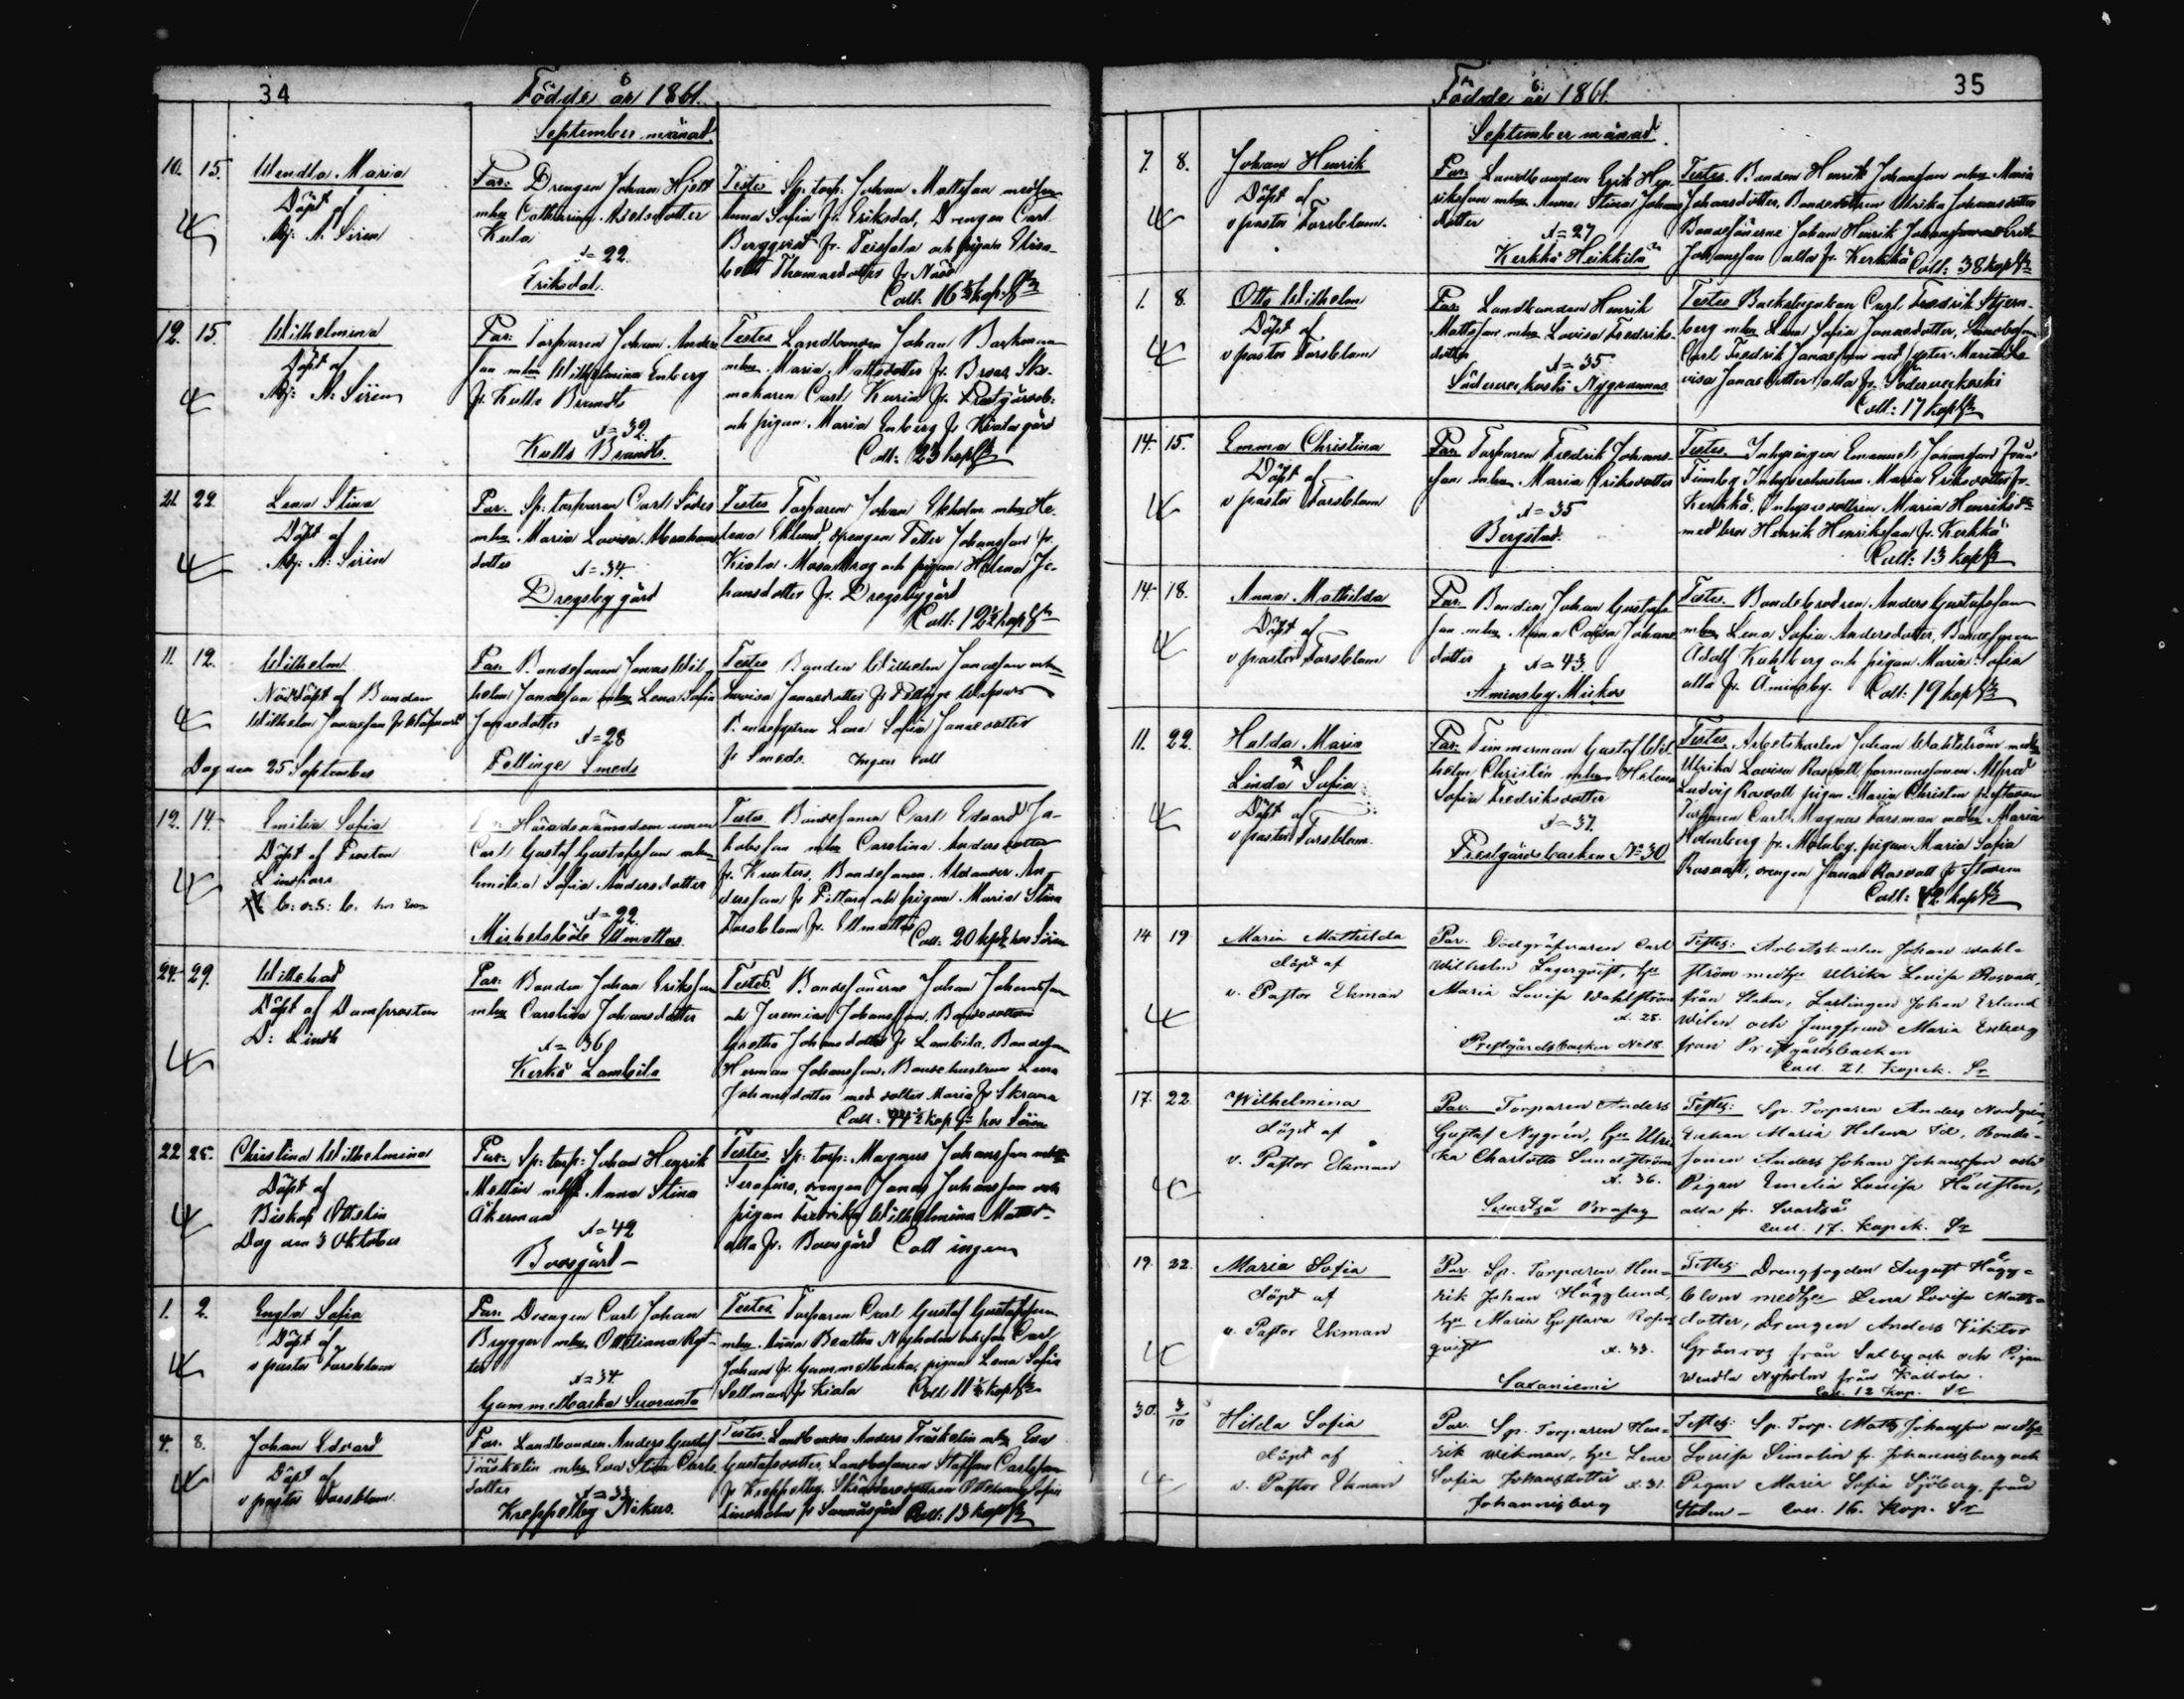 34
Födde år 1861.
September månad.
10. 15. Wendla Maria
Döpt af
Adj: A: Sirén
Par: Drengen Johan Hjelt
mhu Catharina
Kula
Æ= 22.
Eriksdal.
Testes Sp: torp: Johan Mattsson med
Anna Sofia fr. Eriksdal, Drengen Carl
Bergqvist fr. Teissala och pigan Elisa-
beth Thomasdotter fr. Näse
Coll: 16 ½ kop. Sr
12. 15. Wilhelmina
Döpt af
Adj: A: Sirén
Par: Torparen Johan Anders-
son mhu Wilhelmina Enberg
fr. Kulla Brandts
Æ= 32.
Kulla Brandts.
Testes Landbonden Johan Backman
mhu Maria Mattsdotter fr. Sko-
makaren Carl fr. Prestgårdsb:
och pigan Maria Enberg fr Kiala gård
Coll: 23 kop Sr
21. 22. Lena Stina
Döpt af
Adj: A: Sirén
Par. Sp: torparen Carl Söder
mhu Maria Lovisa Abrahams
dotter
Æ= 34.
Drägsby gård
Testes Torparen Johan Ekholm mhu He-
lena Eklund, drengen Petter Johansson fr.
Kiala och pigan Helena Jo-
hansdotter fr. Drägsby gård
Coll: 12 ½ kop Sr
11. 12. Wilhelm
Nöddöpt af Bonden
Wilhelm Jonasson fr
Dog den 25 September
Par. Bondesonen Jonas Wil-
helm Jonasson mhu Lena Sofia
Jonasdotter
Æ= 28
Pellinge Smeds
Testes Bonden Wilhelm Jonasson mhu
Lovisa Jonasdotter fr Pellinge
Lena Sofia Jonasdotter
fr Smeds. Ingen Coll
12. 14. Emilia Sofia
Döpt af Prosten
Lindfors
Par: Häradsnämndemannen
Carl Gustaf Gustafsson mhu
Emilia Sofia Andersdotter
Æ= 22.
Mickelsböle Ellmattas.
Testes Bondesonen Carl Edvard Ja-
kobsson mhu Carolina Andersdotter
fr. Bondesonen Alexander An-
dersson fr Pettars och pigan Maria Stina
Forsblom fr. Ellmattas
Coll: 20 kop
24. 29. Willehad
Döpt af Domprosten
D: Lindh
Par: Bonden Johan Eriksson
mhu Carolina Johansdotter
Æ= 36
Kerkkå Lambila
Testes Bondesönerne Johan Johansson
och Jeremias Johansson, Bondedottren
Greetha Johansdotter fr Lambila, Bondeson
Herman Johansson, Bondehustrun Lena
Johansdotter med dotter Maria fr Skrana
Coll: 44 ½ kop Sr
22 25. Christina Wilhelmina
Döpt af
Biskop Ottelin
Dog den 3 Oktober
Par. Sp: torp: Johan Henrik
Mellin mhu Anna Stina
Åkerman
Æ= 42
Boesgård –
Testes. Sp: torp: Magnus Johansson mhu
Serafina, drengen Jonas Johansson och
pigan Fredrika Wilhelmina
alla fr. Boesgård Coll ingen
1. 2. Engla Sofia
Döpt af
v pastor Forsblom
Par. Drengen Carl Johan
Brygger mhu Ottiliana
Æ= 34.
Gammelbacka Suoranta
Testes Torparen Carl Gustaf Gustafsson
mhu Anna Beatha Nyholm Carl
Johan fr. Gammelbacka, pigan Lena Sofia
Sellman fr Kiala Coll 11 ½ kop Sr
4. 8. Johan Edvard
Döpt af
v pastor Forsblom.
Par. Landbonden Anders Gustaf
Träskelin mhu Eva Stina Carls
dotter
Kreppelby Nikus.
Testes. Landbonden Anders Träskelin mhu Eva
Gustafsdotter, Landbosonen Staffan Carlsson
fr Kreppelby, Skräddaredottren Sofia
Lindholm fr Sannäsgård Coll: 13 kop Sr
35
Födde år 1861.
September månad.
7. 8. Johan Henrik
Döpt af
v pastor Forsblom.
Par. Landbonden Erik Hen-
riksson mhu Anna Stina Johans
dotter
Æ= 27
Kerkkå Heikkilä
Testes. Bonden Henrik Johansson mhu Maria
Johansdotter, Bondedottren Ulrika Johansdotter
Bondesönerne Johan Henrik Johansson Erik
Johansson alla fr. Kerkkå
Coll: 38 kop Sr
1. 8. Otto Wilhelm
Döpt af
v pastor Forsblom
Par. Landbonden Henrik
Mattsson mhu Lovisa Fredriks-
dotter
Æ= 35
Söderveckoski Nygrannas
Testes Backstugukarn Carl Fredrik Stjern-
berg mhu Lena Sofia Jonasdotter,
Carl Fredrik Jonasson med syster Maria Lo
visa Jonasdotter alla fr. Söderveckoski
Coll: 17 kop Sr
14. 15. Emma Christina
Döpt af
v pastor Forsblom
Par. Torparen Fredrik Johans-
son mhu Maria Eriksdotter
Æ= 35
Bergstad.
Testes. Inhysingen Emanuel Johansson från
Finnby Inhyseshustrun Maria Eriksdotter fr.
Kerkkå, Inhysesdottren Maria Henriksdr
med bror Henrik Henriksson fr. Kerkkå
Coll: 13 kop Sr
14. 18. Anna Mathilda
Döpt af
v pastor Forsblom
Par. Bonden Johan Gustafs-
son mhu Anna Cajsa Johans
dotter
Æ= 43
Aminsby Mickos
Testes. Bondebrodren Anders Gustafsson
mhu Lena Sofia Andersdotter, Bondesonen
Adolf Kuhlberg och pigan Maria Sofia
alla fr. Aminsby. Coll: 19 kop Sr
11. 22. Hulda Maria
Linda Sofia
Döpt af
v pastor Forsblom.
Par. Timmerman Gustaf Wil-
helm Christén mhu Helena
Sofia Fredriksdotter
Æ= 37.
Prestgårdsbacken No 30
Testes Arbetskarlen Johan Wahlström mhu
Ulrika Lovisa Rosvall, formanssonen Alfred
Ludvig Rosvall pigan Maria Christén fr staden
Torparen Carl Magnus Forsman mhu Maria
Holmberg fr. Molnby, pigan Maria Sofia
Rosvall, drengen Johan Rosvall fr staden
14 19 Maria Mathilda
döpt af
v. Pastor Ekman
Par. Dödgräfvaren Carl
Wilhelm Lagerqvist, hu
Maria Lovisa Wahlström
Æ. 28.
Prestgårdsbacken No 18.
Testes: Arbetskarlen Johan Wahl-
ström med hu Ulrika Lovisa Rosvall,
från Staden, Lärlingen Johan Erland
Wilen och Jungfrun Maria Enberg
från Prestgårdsbacken
Coll. 21. Kopek. Sr
17. 22 Wilhelmina
döpt af
v. Pastor Ekman
Par. Torparen Anders
Gustaf Nygrén, hu Ulri-
ka Charlotta Sundström
Æ. 36.
Svartså Brasas
Testes: Sp. Torparen Anders
Enkan Maria Helena Id, Bonde-
sonen Anders Johan Johansson och
Pigan Emelia Lovisa Hallsten,
alla fr. Svartså
Coll. 17. Kopek. Sr
19. 22. Maria Sofia
döpt af
v. Pastor Ekman
Par. Sp. Torparen Hen-
rik Johan Hägglund,
hu Maria Gustava Rosen
qvist
Æ. 33.
Sataniemi
Testes: Drengfogden August Hägg-
blom med hu Lena Lovisa Matts-
dotter, Drengen Anders Viktor
Grönros från och Pigan
Wendla Nyholm från
Coll. 12 Kop. Sr
30. 3/10 Hilda Sofia
döpt af
v. Pastor Ekman
Par. Sp. Torparen Hen-
rik Wikman, hu Lena
Sofia Johansdotter Æ. 31.
Johannisberg
Testes: Sp. Torp. Matts Johansson med hu
Lovisa Simolin fr. Johannisberg och
Pigan Maria Sofia Sjöberg från
Staden – Coll. 16. Kop. Sr